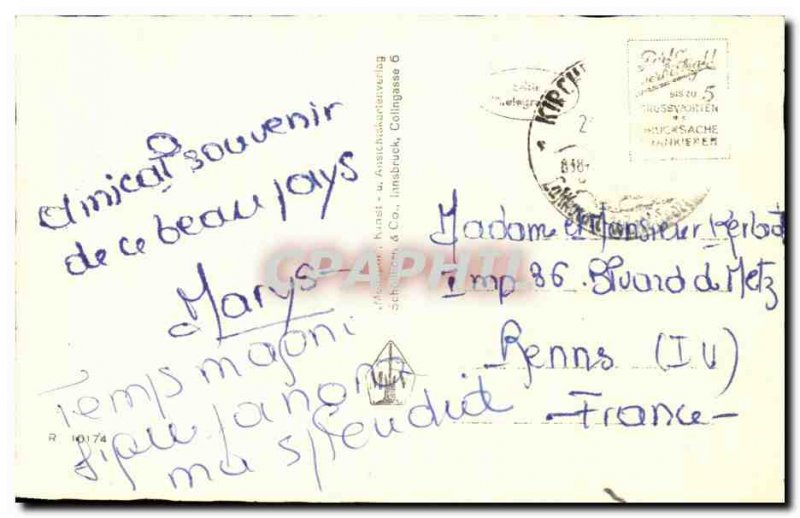 Amical souvenir
de ce beau pays
Marys
Temps magni
fique panora
ma splendid
R 10174
Kunst - u. Ansichtskartenverlag
& Co., Innsbruck, Colingasse 6
CPAPHIL
KIRCH
BIS ZU 5
GRUSSWORTEN
DRUCKSACHE
FRANKIEREN
Madame et Monsieur
Imp 86 Blvard de Metz
Renns (IV)
- France -